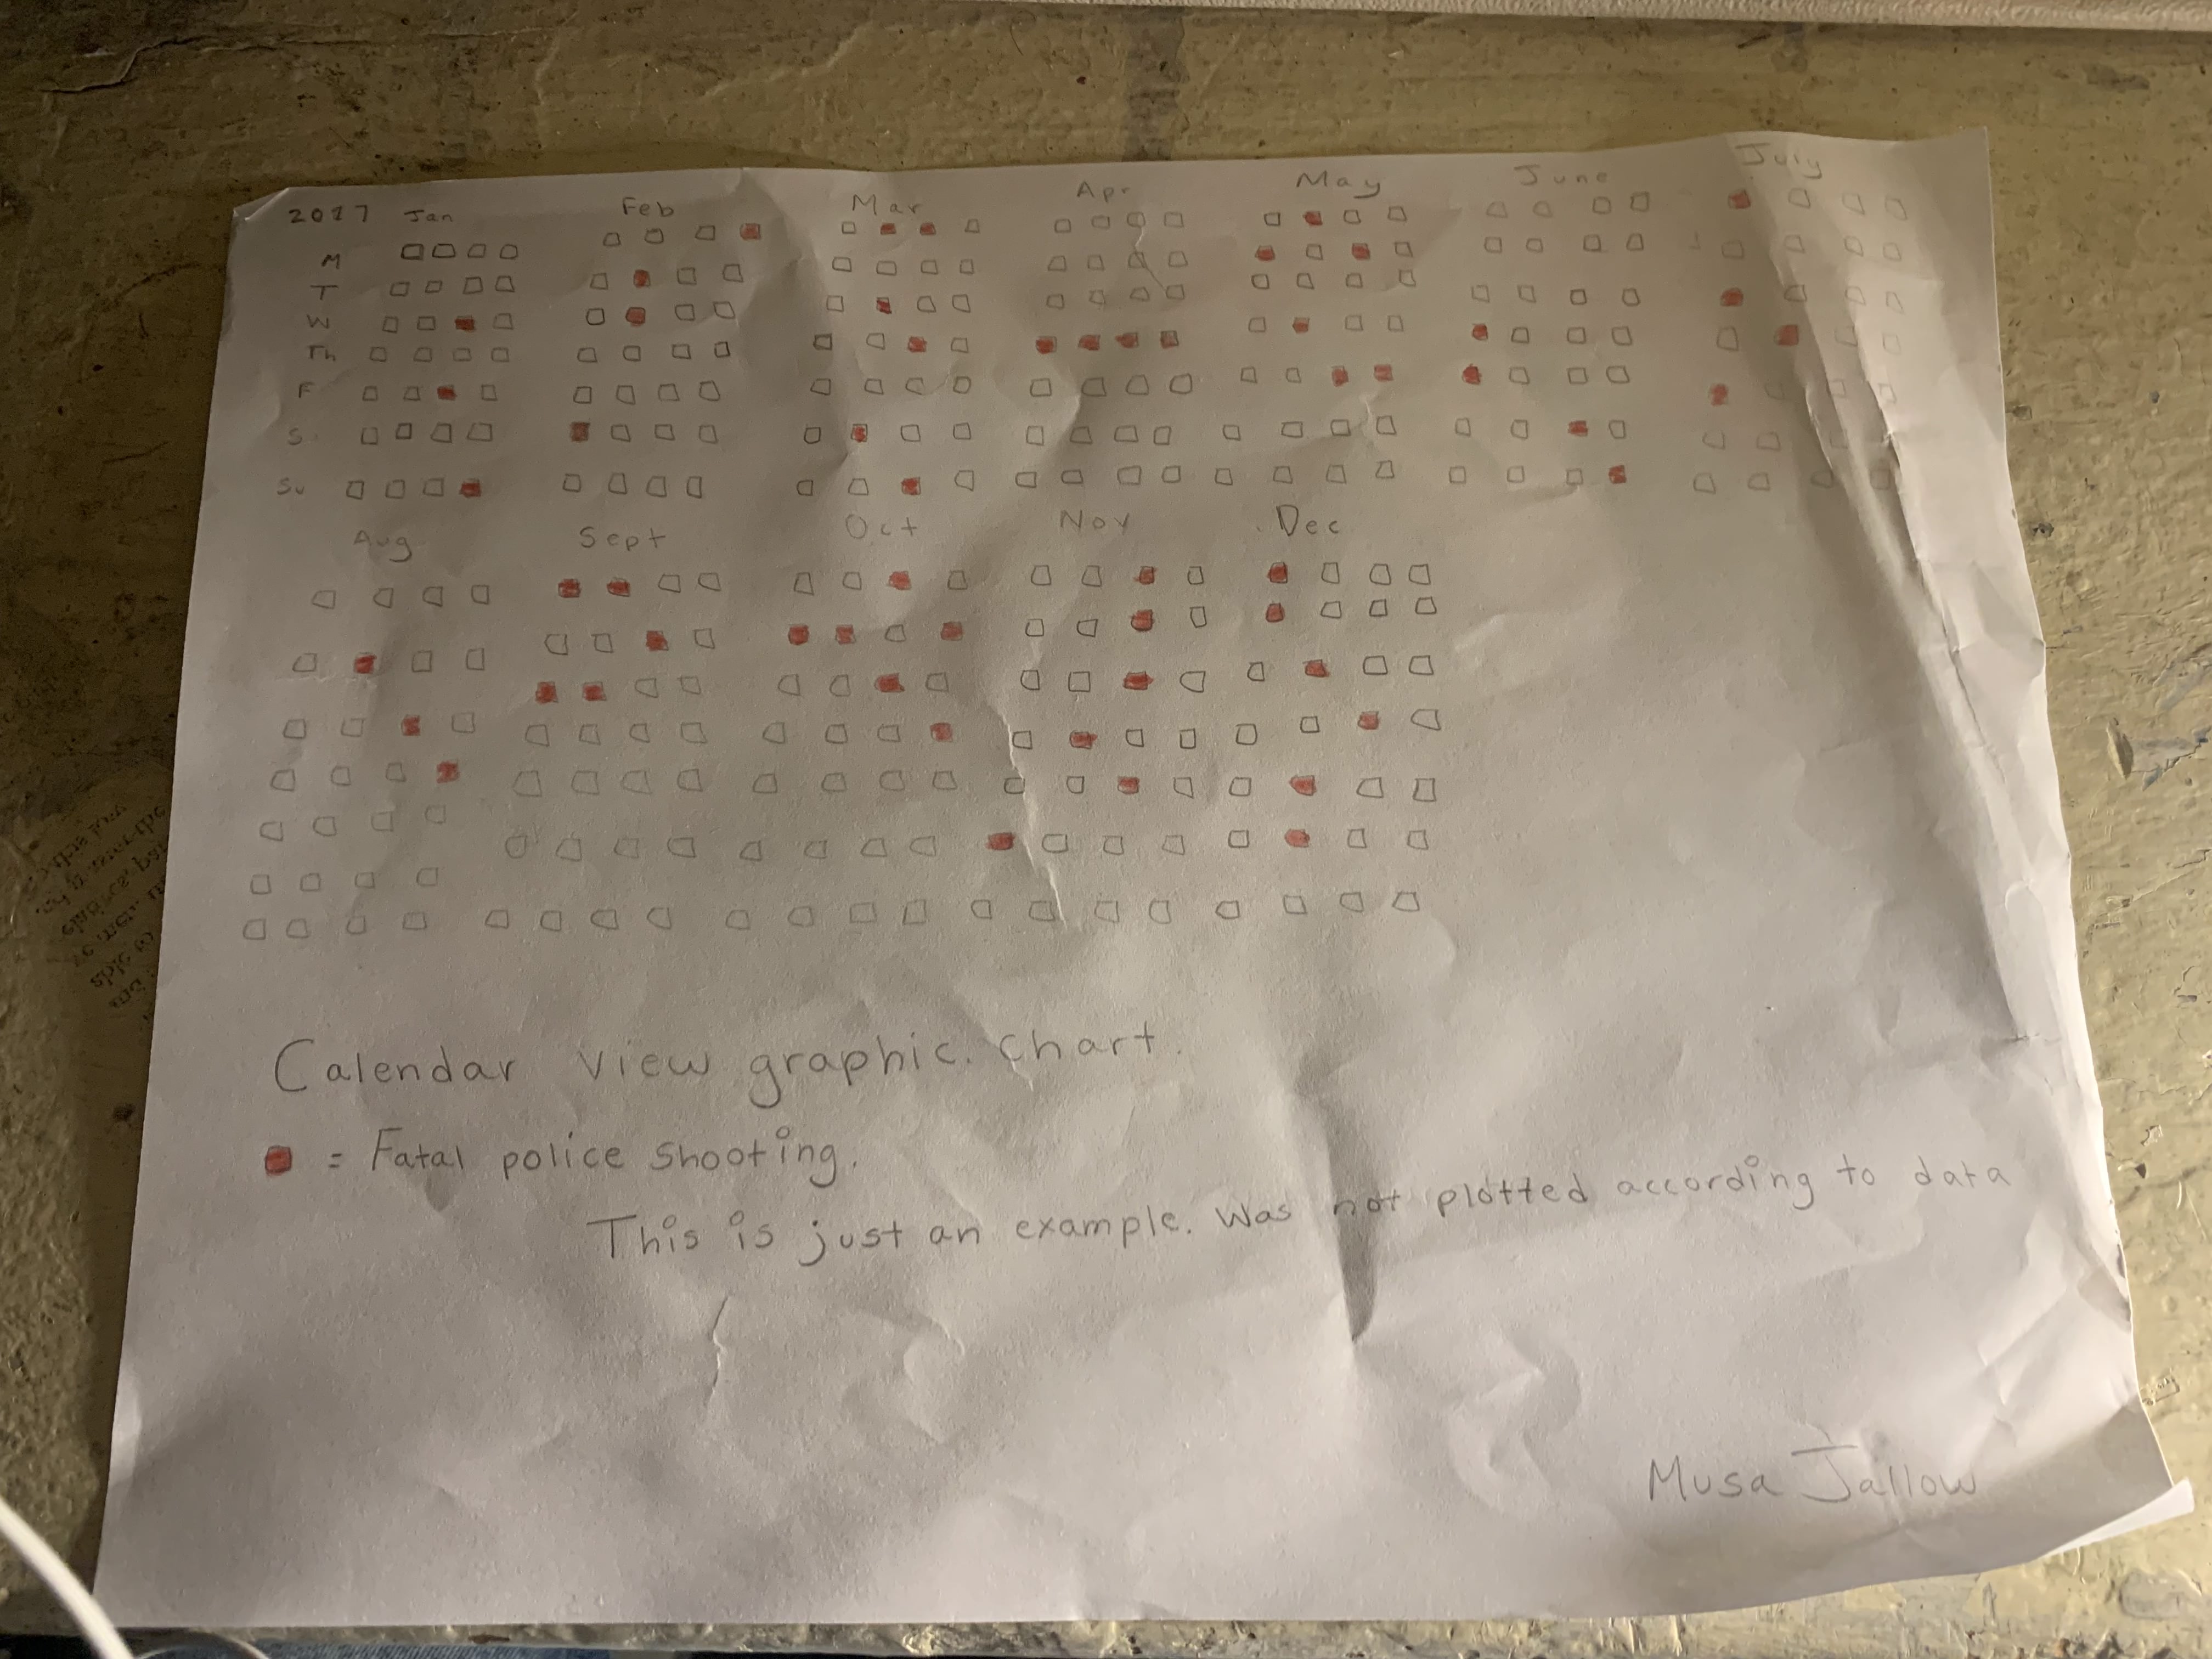 2017 Jan Feb Mar Apr May June July
M
T
W
Th
F
S
Su
Aug Sept Oct Nov Dec
Calendar view graphic. Chart.
= Fatal police shooting.
This is just an example. Was not plotted according to data
Musa Jallow